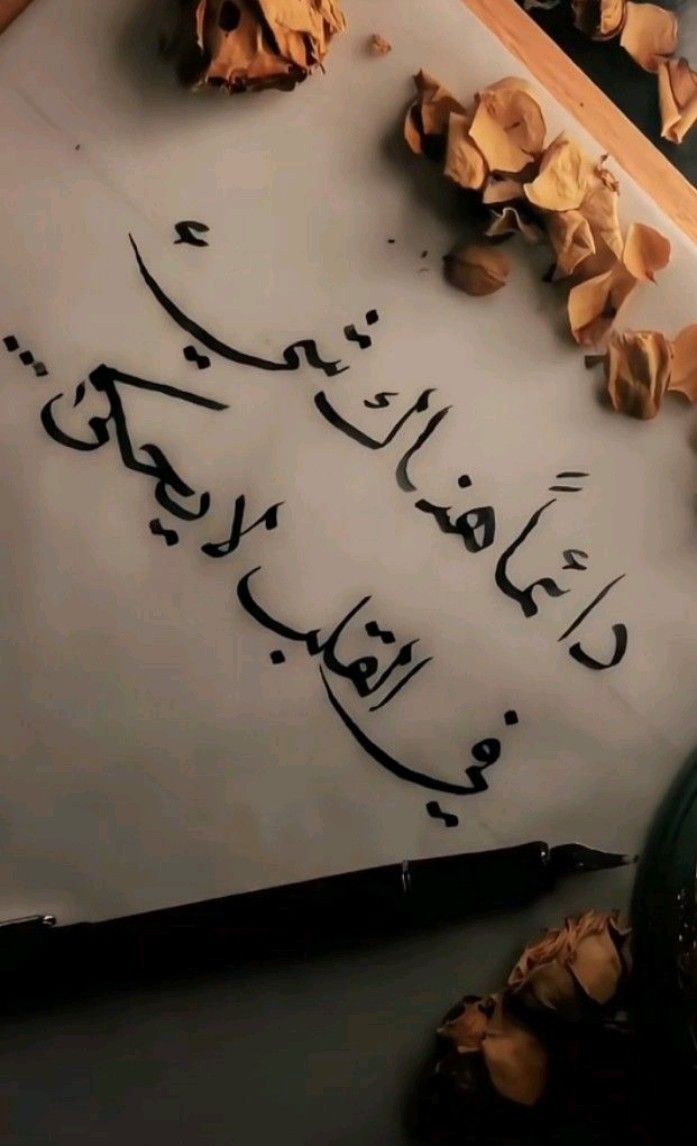 دائماً هناك شيئ
في القلب لا يحكىَ...